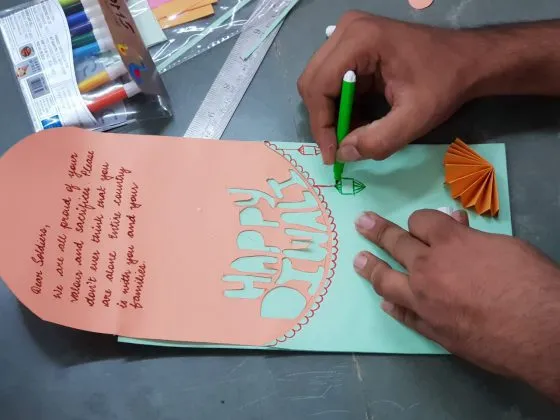 Dear Soldiers,
We are all proud of your
valour and sacrifices. Please
don't ever think that you
are alone. Entire country
is with you and your
families.
HAPPY
DIWALI